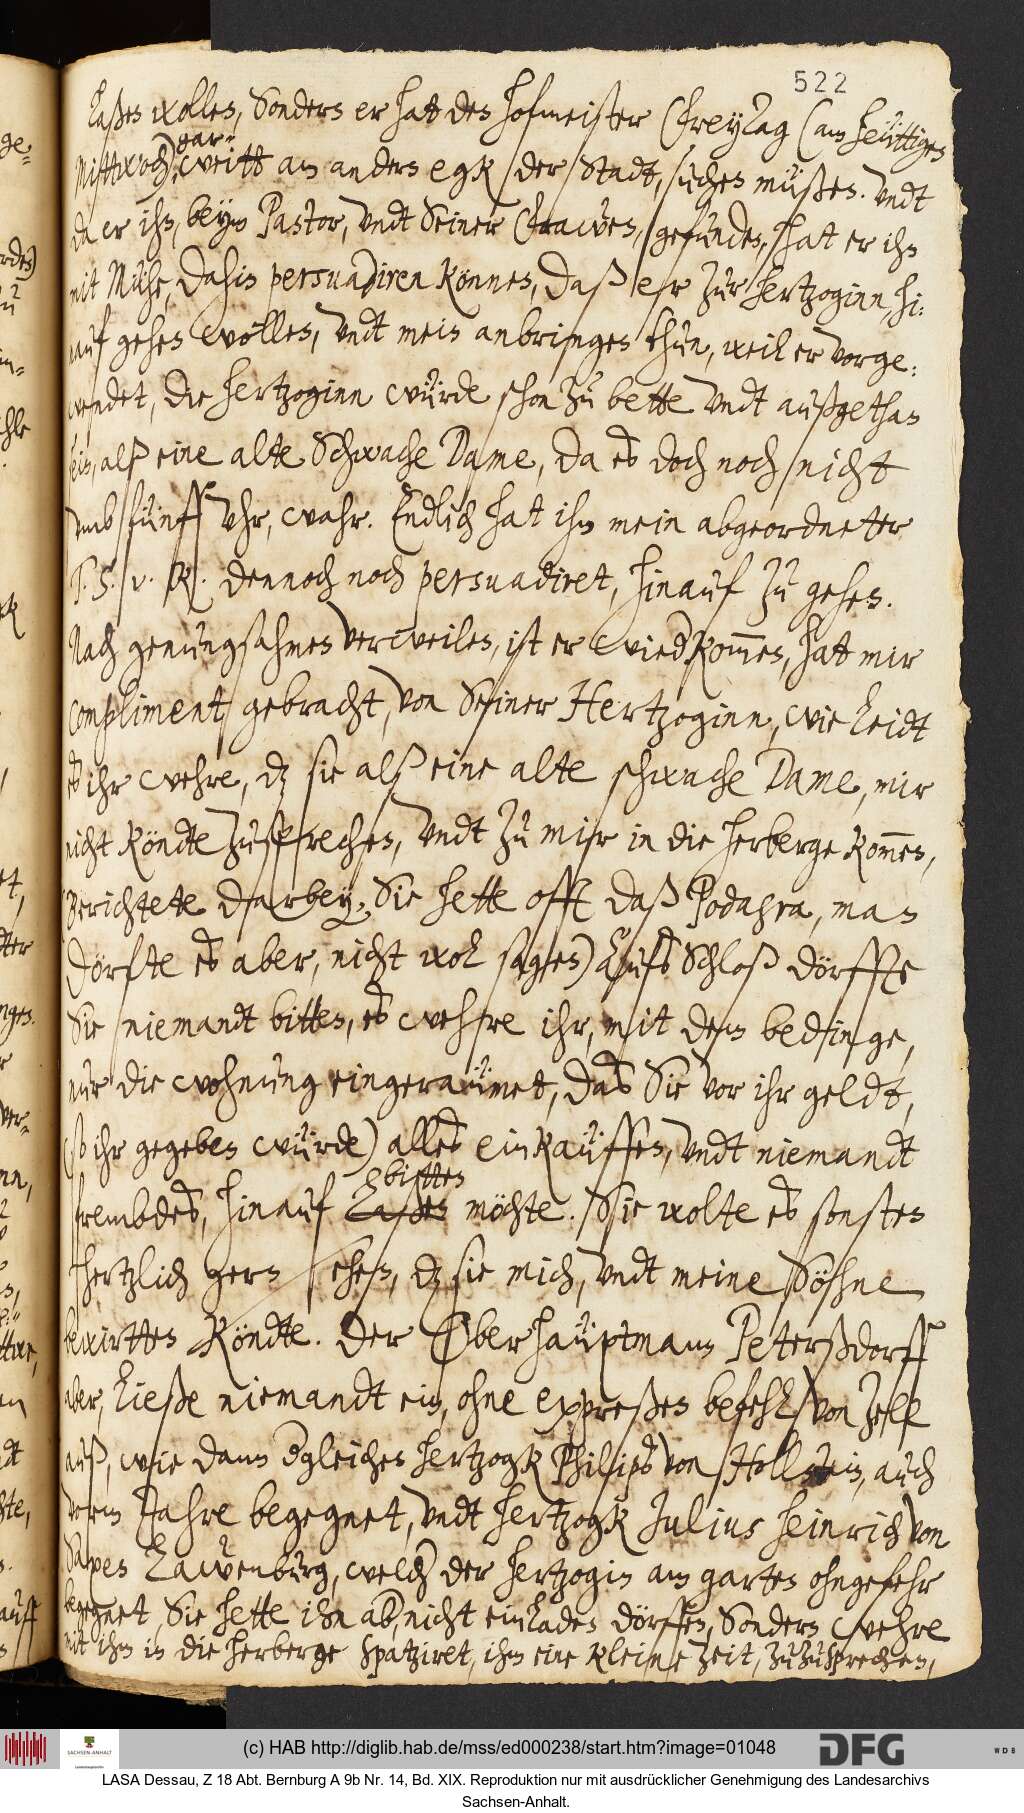 522
laßen wollen, Sondern er hat den hofmeister Freytag (am heüttigen
Mittwoch) gar weitt am andern egk der Stadt, suchen müßen. Vndt
da er ihn, beym Pastor, vndt Seiner Frawen, gefunden, hat er ihn
mit Mühe, dahin persuadiren können, daß er zur hertzoginn, hi-
nauf gehen wöllen, vndt mein anbringen thun, weil er vorge-
wendet, die hertzoginn würde schon zu bette vndt außgethan
sein, alß eine alte Schwache Dame, da es doch noch nicht
vmb fünff Vhr, wahr. Endlich hat ihn mein abgeordneter
T. S. v. K. dennoch noch persuadiret, hinauf zu gehen.
Nach genungsahmen verweilen, ist er wiedkommen, hat mir
compliment gebracht, von Seiner Hertzoginn, wie leidt
es ihr wehre, dz sie alß eine alte schwache Dame, mir
nicht köndte zusprechen, vndt zu mir in die herberge kommen,
(Berichtete darbey, Sie hette offt daß Podagra, man
dörfte es aber, nicht wol sagen) Aufs Schloß dörffte
Sie niemandt bitten, es wehre ihr, mit dem bedinge,
nur die wohnung eingeraümet, das Sie vor ihr geldt,
(so ihr gegeben würde) alles einkaüffen, vndt niemandt
frembdes, hinauf laßen bitten möchte. Sie wolte es sonsten
hertzlich gern sehen, dz sie mich, vndt meine Söhne
bewirtten köndte. Der Oberhaüptmann Peterßdorff
aber, ließe niemandt ein, ohne expreßen befehl, von Zell
auß, wie dann dergleichen hertzogk Philips von Hollstein, auch
vorm Jahre begegnet, vndt hertzogk Julius heinrich von
Saxen Lawenburg, welch der hertzogin am garten ohngefehr
begegnet, Sie hette ihn ab, nicht einladen dörffen, Sondern wehre
mit ihm in die herberge spatziret, ihm eine kleine zeit, zuzusprechen,
(c) HAB http://diglib.hab.de/mss/ed000238/start.htm?image=01048
SACHSEN-ANHALT
DFG
WDB
LASA Dessau, Z 18 Abt. Bernburg A 9b Nr. 14, Bd. XIX. Reproduktion nur mit ausdrücklicher Genehmigung des Landesarchivs
Sachsen-Anhalt.